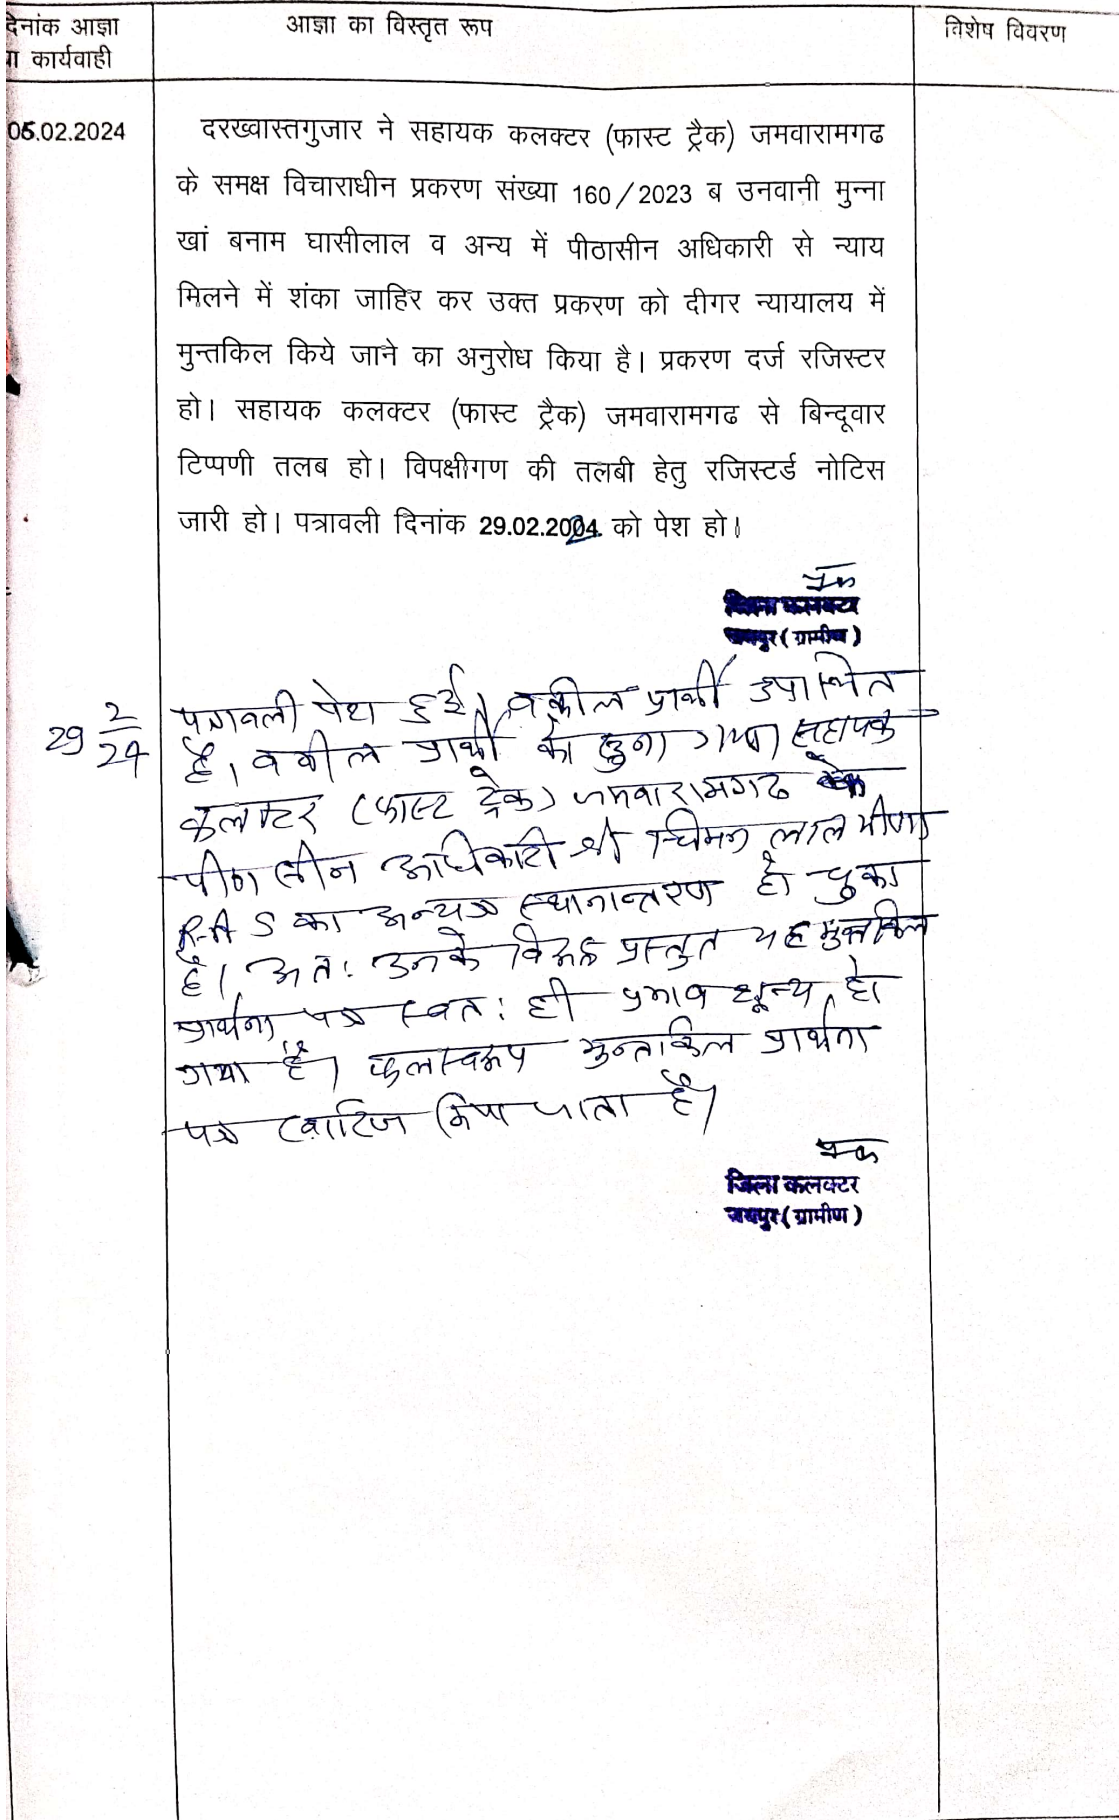 दिनांक आज्ञा
या कार्यवाही
आज्ञा का विस्तृत रूप
विशेष विवरण
05.02.2024
दरख्वास्तगुजार ने सहायक कलक्टर (फास्ट ट्रैक) जमवारामगढ
के समक्ष विचाराधीन प्रकरण संख्या 160/2023 ब उनवानी मुन्ना
खां बनाम घासीलाल व अन्य में पीठासीन अधिकारी से न्याय
मिलने में शंका जाहिर कर उक्त प्रकरण को दीगर न्यायालय में
मुन्तकिल किये जाने का अनुरोध किया है। प्रकरण दर्ज रजिस्टर
हो। सहायक कलक्टर (फास्ट ट्रैक) जमवारामगढ से बिन्दूवार
टिप्पणी तलब हो। विपक्षीगण की तलबी हेतु रजिस्टर्ड नोटिस
जारी हो। पत्रावली दिनांक 29.02.2024 को पेश हो।
जिला कलक्टर
जयपुर (ग्रामीण)
29 2/24
पत्रावली पेश हुई। वकील प्रार्थी उपस्थित
है। वकील प्रार्थी को सुना गया। सहायक
कलक्टर (फास्ट ट्रेक) जमवारामगढ के
पीठासीन अधिकारी श्री चिमन लाल मीणा
R.A.S का अन्यत्र स्थानान्तरण हो चुका
है। अतः उनके विरूद्ध प्रस्तुत यह मुन्तकिल
प्रार्थना पत्र स्वतः ही प्रभाव शून्य हो
गया है। फलस्वरूप मुन्तकिल प्रार्थना
पत्र खारिज किया जाता है।
जिला कलक्टर
जयपुर (ग्रामीण)